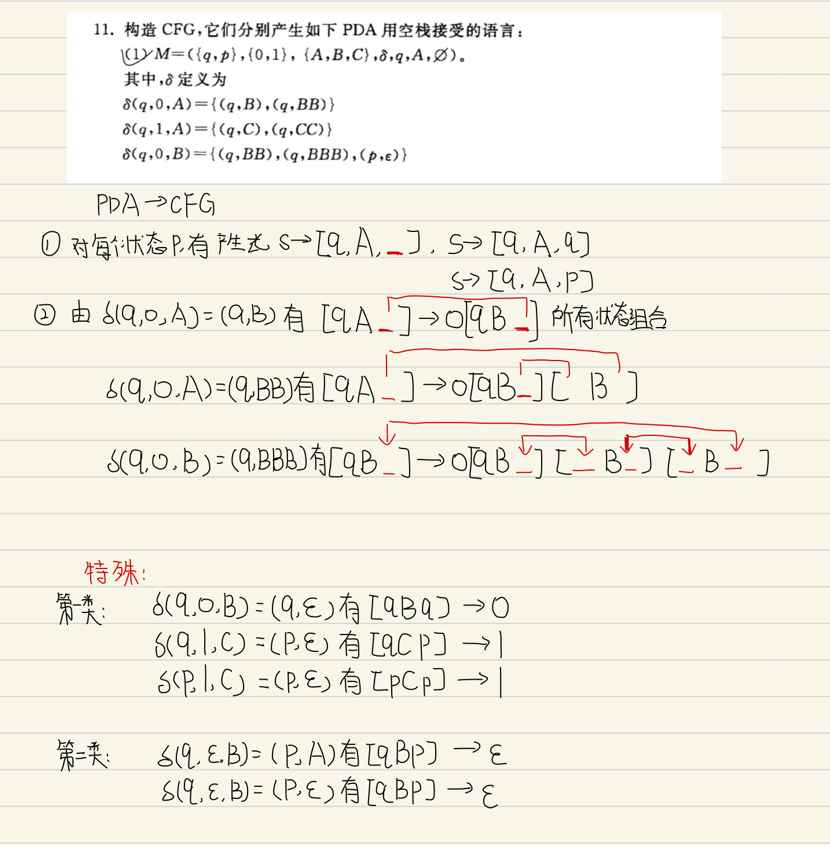 11. 构造 CFG,它们分别产生如下 PDA 用空栈接受的语言:
(1) M=({q,p},{0,1}, {A,B,C},δ,q,A,∅)。
其中,δ 定义为
δ(q,0,A)={(q,B),(q,BB)}
δ(q,1,A)={(q,C),(q,CC)}
δ(q,0,B)={(q,BB),(q,BBB),(p,ε)}
PDA→CFG
① 对每个状态P,有产生式 S→[q,A,_]. S→[q,A,q]
S→[q,A,p]
② 由 δ(q,0,A)=(q,B)有 [qA_]→0[qB_] 所有状态组合
δ(q,0,A)=(q,BB)有[qA_]→0[qB_][ B ]
δ(q,0,B)=(q,BBB)有[qB_]→0[qB_][_B_][_B_]
特殊:
第一类: δ(q,0,B)=(q,ε)有[qBq]→0
δ(q,1,C)=(p,ε)有[qCp]→1
δ(p,1,C)=(p,ε)有[pCp]→1
第二类: δ(q,ε,B)=(p,A)有[qBp]→ε
δ(q,ε,B)=(p,ε)有[qBp]→ε